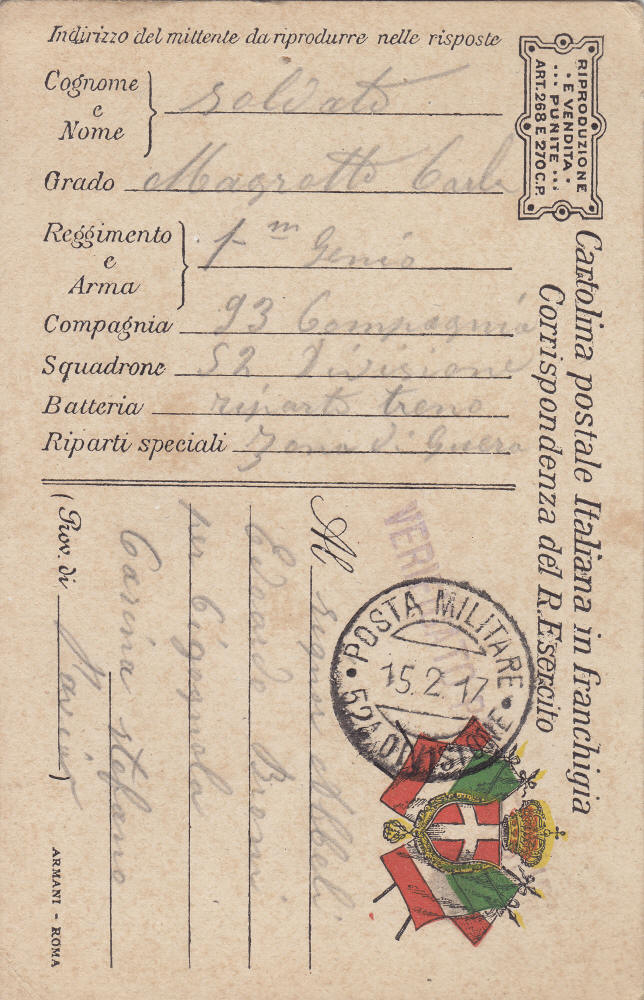 Indirizzo del mittente da riprodurre nelle risposte
Cognome e Nome soldato
Grado Magrotto Carlo
Reggimento e Arma 1- m Genio
Compagnia 93 Compagnia
Squadrone 52 Divisione
Batteria riparto treno
Riparti speciali Zona di Guera
RIPRODUZIONE
E VENDITA
PUNITE
ART. 268 E 270 C.P.
Cartolina postale Italiana in franchigia
Corrispondenza del R. Esercito
POSTA MILITARE
15.2.17
52A DIVISIONE
Al signor
Edoardo
per
Casina stefano
(Prov. di)
ARMANI - ROMA